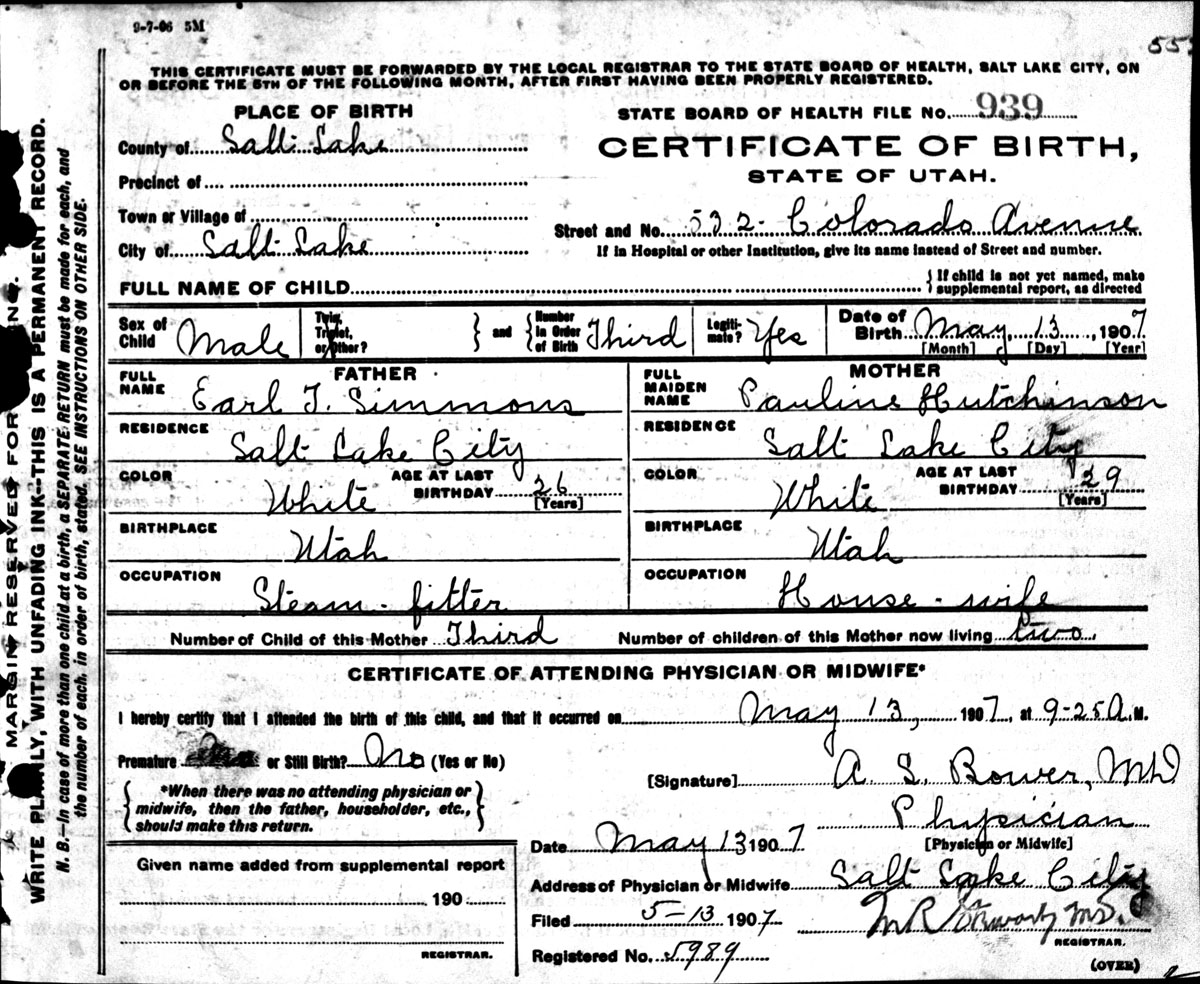 9-7-06 5M
55
THIS CERTIFICATE MUST BE FORWARDED BY THE LOCAL REGISTRAR TO THE STATE BOARD OF HEALTH, SALT LAKE CITY, ON
OR BEFORE THE 5TH OF THE FOLLOWING MONTH, AFTER FIRST HAVING BEEN PROPERLY REGISTERED.
PLACE OF BIRTH
STATE BOARD OF HEALTH FILE No. 939
County of Salt Lake
CERTIFICATE OF BIRTH,
STATE OF UTAH.
Precinct of
Town or Village of
Street and No. 532- Colorado Avenue
City of Salt Lake
If in Hospital or other Institution, give its name instead of Street and number.
FULL NAME OF CHILD
{ If child is not yet named, make
supplemental report, as directed
Sex of Child Male
Twin, Triplet, or Other? } and { Number in Order of Birth Third
Legiti-mate? Yes
Date of Birth May 13, 1907
[Month] [Day] [Year]
FATHER
FULL NAME Earl T. Simmons
RESIDENCE Salt Lake City
COLOR White AGE AT LAST BIRTHDAY 26 [Years]
BIRTHPLACE Utah
OCCUPATION Steam-fitter
MOTHER
FULL MAIDEN NAME Pauline Hutchinson
RESIDENCE Salt Lake City
COLOR White AGE AT LAST BIRTHDAY 29 [Years]
BIRTHPLACE Utah
OCCUPATION House-wife
Number of Child of this Mother Third Number of children of this Mother now living two.
CERTIFICATE OF ATTENDING PHYSICIAN OR MIDWIFE*
I hereby certify that I attended the birth of this child, and that it occurred on May 13, 1907, at 9-25 A.M.
Premature or Still Birth? No (Yes or No)
{ *When there was no attending physician or
midwife, then the father, householder, etc.,
should make this return. }
[Signature] A. S. Bower, MD
Physician
[Physician or Midwife]
Date May 13 1907
Given name added from supplemental report
190
REGISTRAR.
Address of Physician or Midwife Salt Lake City
Filed 5-13 1907
M R Stewart MD.
REGISTRAR.
Registered No. 5989
(OVER)
MARGIN RESERVED FOR
WRITE PLAINLY, WITH UNFADING INK--THIS IS A PERMANENT RECORD.
N. B.—In case of more than one child at a birth, a SEPARATE RETURN must be made for each, and
the number of each, in order of birth, stated. SEE INSTRUCTIONS ON OTHER SIDE.